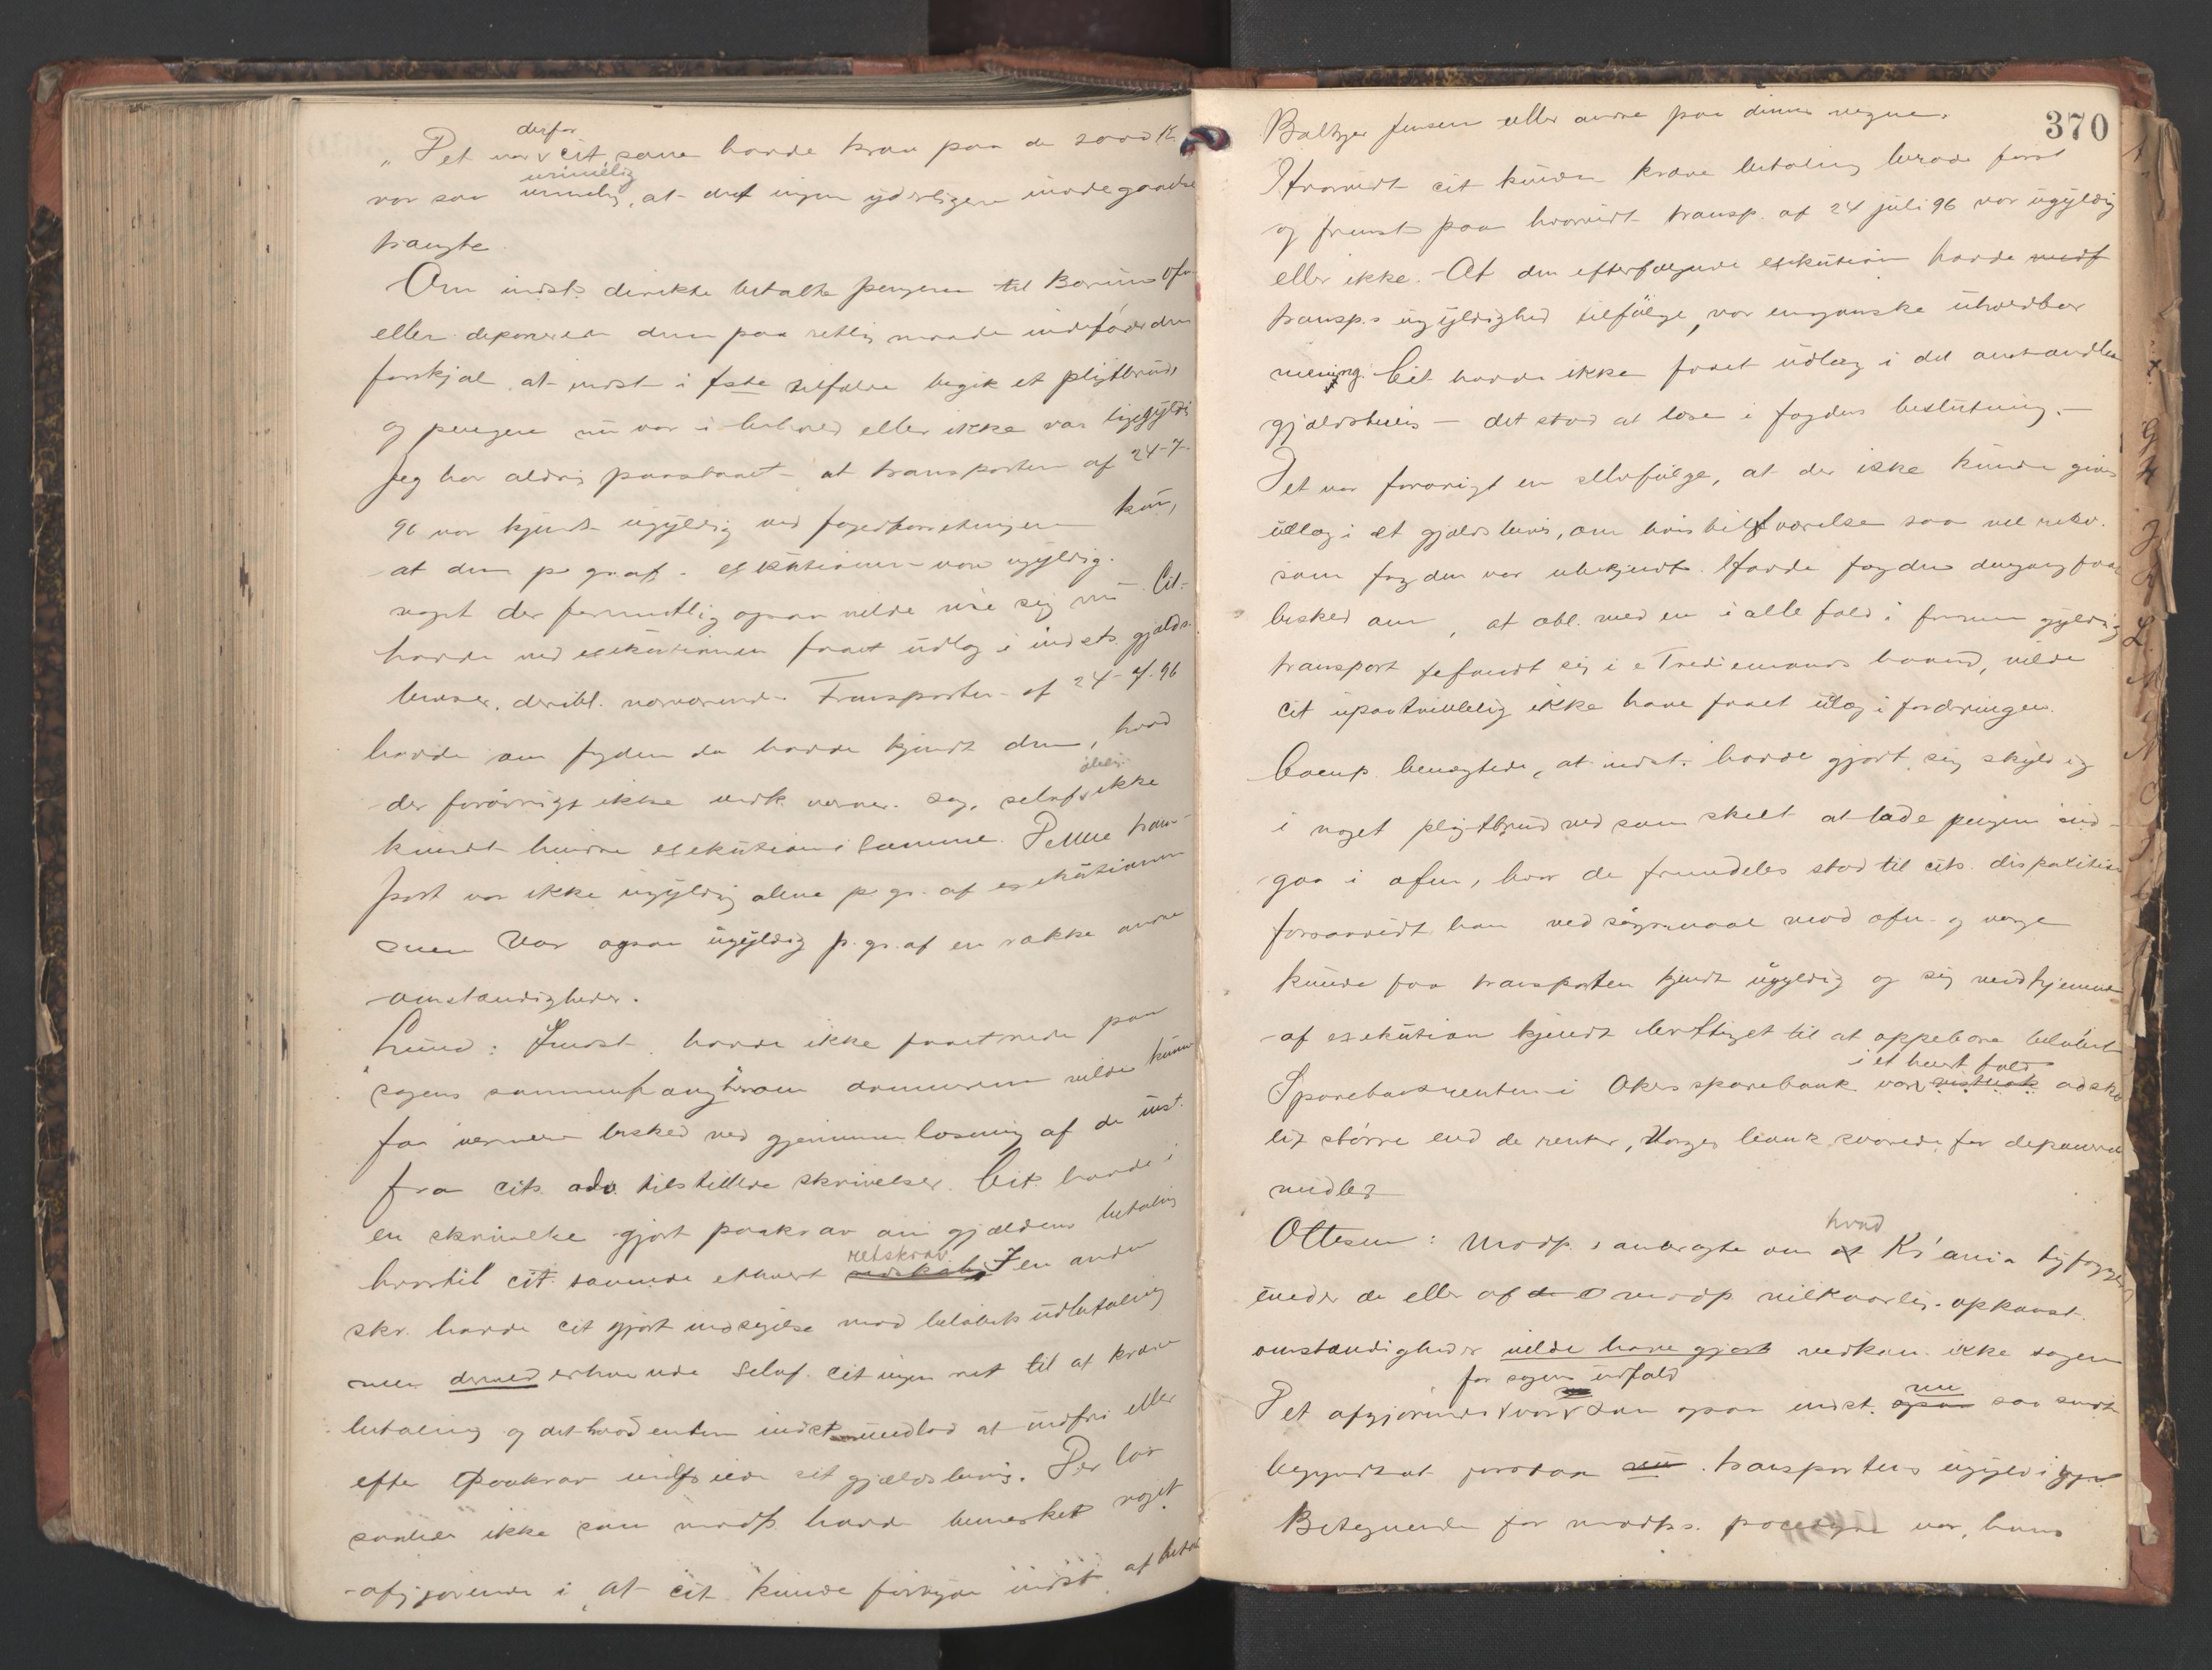 „Det var derfor cit, som havde krav paa de 2000 K
var saa urimelig urimelig, at det ingen yderligere imødegaaelse
trængte.
Om indst. direkte betalte pengene til Borums ofn.
eller deponerede dem paa retlig maade indeførde den
forskjel, at indst i første tilfælde begik et pligtbrud,
og pengene nu var i behold eller ikke var ligegyldig
Jeg har aldrig paastaaet at transporten af 24-7-
96 var kjendt ugyldig ved fogedforretningen kun,
at den p. gr. af exekutionen var ugyldig.
noget der formentlig ogsaa vilde vise sig nu. Cit.
havde ved exekutionen faaet udlæg i indsts gjælds-
beviser, deribl. nærværende. Transporten af 24-7-96
havde om fogden da havde kjendt den, hvad
der forøvrigt ikke vedk nærvær. sag, selvf. ikke
kundt hindre exekution i samme. Denne trans-
port var ikke ugyldig alene p. gr. af exekutionen
men var ogsaa ugyldig p. gr. af en række andre
omstændigheder.
Lund: Indst. havde ikke faaet rede paa
sagens sammenhæng, herom dommeren vilde kunne
faa nærmere besked ved gjennemlæsning af de indst.
fra cits. adv. tilstillede skrivelser. Cit. havde i
en skrivelse gjort paakrav om gjældens betaling
hvortil cit. savnede ethvert retskrav. I en anden
skr. havde cit gjort indsigelse mod beløbets udbetaling
men dermed erhvervede selvf. cit ingen ret til at kræve
betaling og det hvad enten indst undlod at indfri eller
efter paakrav indfriede sit gjældsbevis. Der laa
saaledes ikke som modp. havde bemerket noget
afgjørende i, at cit kunde forbyde indst. at betale
370
Baltzer Jensen eller andre paa dennes vegne.
Hvorvidt cit kunde kræve betaling beroede først
og fremst paa hvorvidt transp. af 24 juli 96 var ugyldig
eller ikke. At den efterfølgende exekution havde medf
transp.s ugyldighed tilfølge, var en ganske uholdbar
mening. Cit havde ikke faaet udlæg i det omhandlede
gjældsbevis – det stod at læse i fogdens beslutning. –
Det var forøvrigt en selvfølge, at der ikke kunde gives
udlæg i et gjældsbevis, om hvis tilværelse saa vel rekv.
som fogden var ubekjendt. Havde fogden dengang faaet
besked om, at obl. med en i alle fald i formen gyldig
transport befandt sig i Trediemands haand, vilde
cit upaatvivlelig ikke have faaet udlæg i fordringen.
Comp. benægtede, at indst. havde gjort sig skyldig
i noget pligtbrud ved som skeet at lade pengene ind-
gaa i ofn., hvor de fremdeles stod til cits. disposition
forsaavidt han ved søgsmaal mod ofn. og verge
kunde faa transporten kjendt ugyldig og sig ved hjemmel
af exekution kjendt berettiget til at oppebære beløbet
Sparebankrenten i Akers sparebank var i et hvert fald adskil-
lig større end de renter, Norges bank svarede for deponerede
midler
Ottesen: Modp.s anbragte om hvad Kr'ania byfogd
eneder de eller af de modp. vilkaarlig opkonst.
omstændigheder vilde have gjort vedkom. ikke sagen
Det afgjørende for sagens udfald var som ogsaa indst. nu saa smaat
begyndt at forstaa transportens ugyldighed
Betegnende for modp.s procedyre var, hans